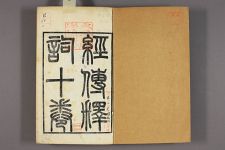 經傳釋
詞十卷